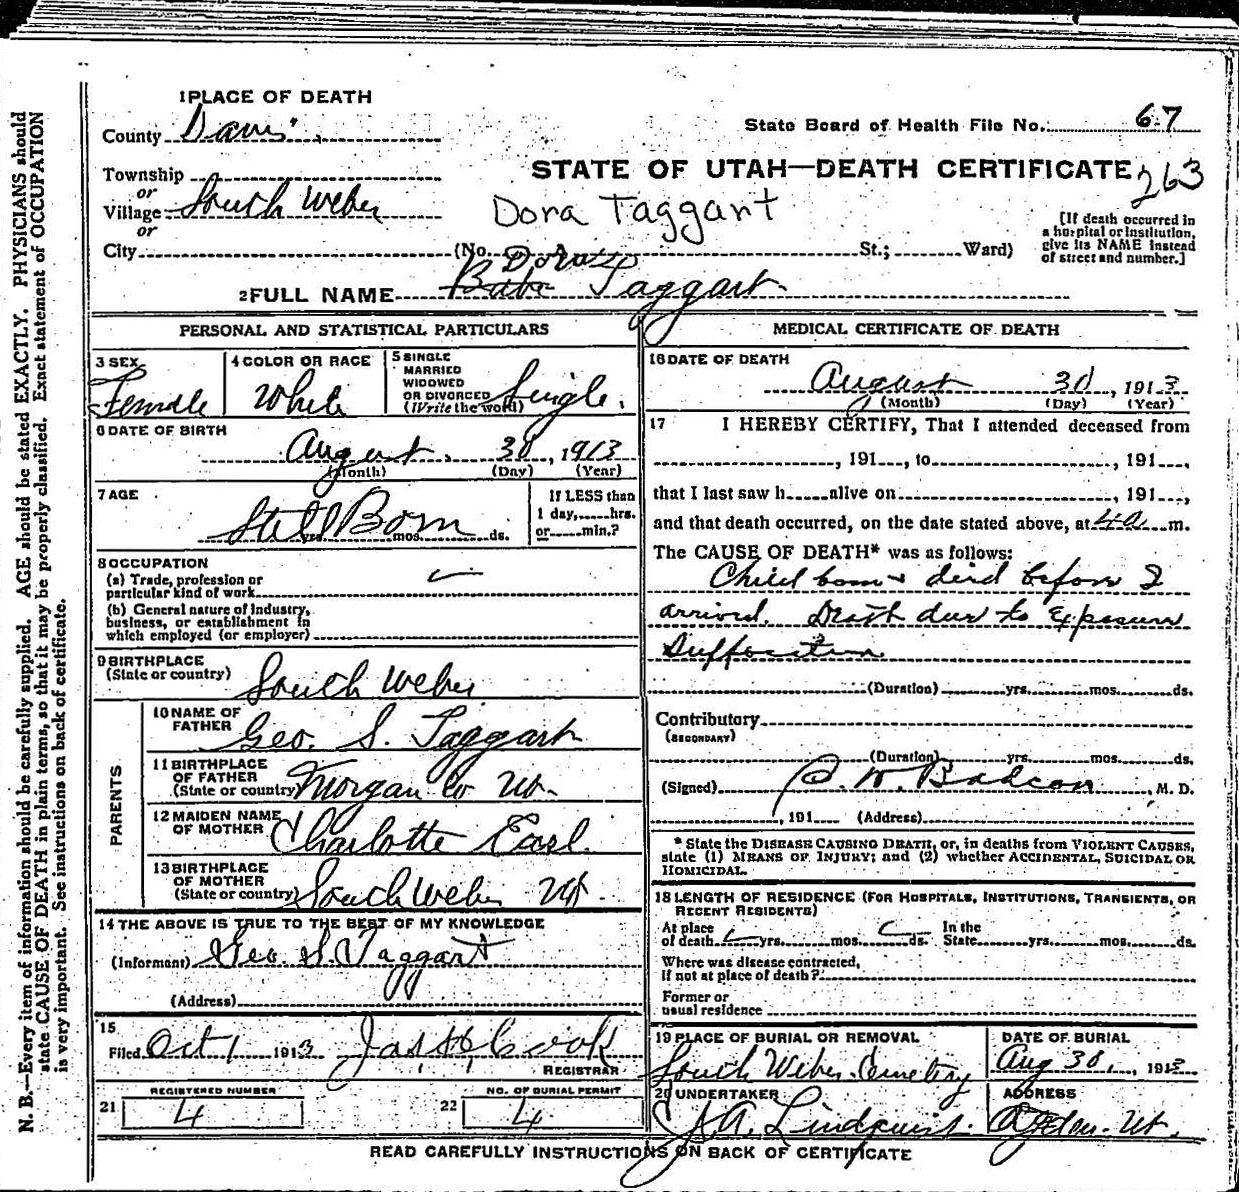 1 PLACE OF DEATH
County Davis
State Board of Health File No. 67
Township
STATE OF UTAH—DEATH CERTIFICATE 263
or
Village South Weber
Dora Taggart
or
[If death occurred in
a hospital or institution,
give its NAME instead
of street and number.]
City (No. St.; Ward)
Dora
2 FULL NAME Babe Taggart
PERSONAL AND STATISTICAL PARTICULARS
3 SEX Female
4 COLOR OR RACE White
5 SINGLE
MARRIED
WIDOWED
OR DIVORCED
(Write the word) Single.
6 DATE OF BIRTH
August 30, 1913
(Month) (Day) (Year)
7 AGE
Still Born
yrs. mos. ds.
If LESS than
1 day, hrs.
or min.?
8 OCCUPATION
(a) Trade, profession or
particular kind of work
(b) General nature of Industry,
business, or establishment in
which employed (or employer)
9 BIRTHPLACE
(State or country) South Weber
PARENTS
10 NAME OF
FATHER Geo. S. Taggart
11 BIRTHPLACE
OF FATHER
(State or country) Morgan Co Ut.
12 MAIDEN NAME
OF MOTHER Charlotte Earl
13 BIRTHPLACE
OF MOTHER
(State or country) South Weber Ut.
14 THE ABOVE IS TRUE TO THE BEST OF MY KNOWLEDGE
(Informant) Geo. S. Taggart
(Address)
15
Filed Oct 1 1913 Jas. H. Cook
REGISTRAR
REGISTERED NUMBER
21 4
NO. OF BURIAL PERMIT
22 4
MEDICAL CERTIFICATE OF DEATH
16 DATE OF DEATH
August 30, 1913
(Month) (Day) (Year)
17 I HEREBY CERTIFY, That I attended deceased from
, 191 , to , 191 ,
that I last saw h alive on , 191 ,
and that death occurred, on the date stated above, at 4 a. m.
The CAUSE OF DEATH* was as follows:
Child born & died before I
arrived. Death due to Exposure
Suffocation
(Duration) yrs. mos. ds.
Contributory
(SECONDARY)
(Duration) yrs. mos. ds.
(Signed) M. D.
, 191 (Address)
* State the DISEASE CAUSING DEATH, or, in deaths from VIOLENT CAUSES,
state (1) MEANS OF INJURY; and (2) whether ACCIDENTAL, SUICIDAL OR
HOMICIDAL.
18 LENGTH OF RESIDENCE (FOR HOSPITALS, INSTITUTIONS, TRANSIENTS, OR
RECENT RESIDENTS)
At place
of death yrs. mos. ds.
In the
State yrs. mos. ds.
Where was disease contracted,
if not at place of death?
Former or
usual residence
19 PLACE OF BURIAL OR REMOVAL
South Weber Cemetery
DATE OF BURIAL
Aug 30, 1913
20 UNDERTAKER
J A. Lindquist.
ADDRESS
Ogden. Ut.
READ CAREFULLY INSTRUCTIONS ON BACK OF CERTIFICATE
N. B.—Every item of information should be carefully supplied. AGE should be stated EXACTLY. PHYSICIANS should
state CAUSE OF DEATH in plain terms, so that it may be properly classified. Exact statement of OCCUPATION
is very important. See instructions on back of certificate.